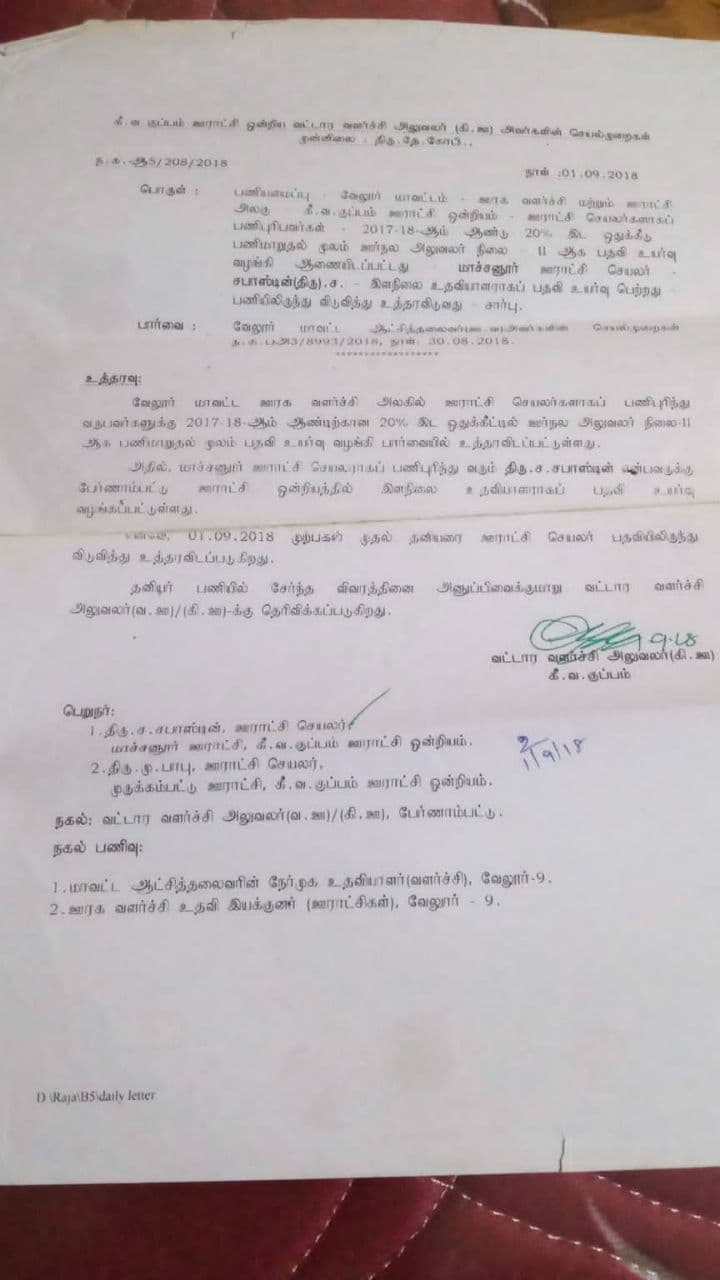 கீ.வ.குப்பம் ஊராட்சி ஒன்றிய வட்டார வளர்ச்சி அலுவலர் (கி.ஊ) அவர்களின் செயல்முறைகள்
முன்னிலை : திரு.தே.கோபி.,
ந.க.ஆ5/208/2018
நாள் :01.09.2018
பொருள் : பணியமைப்பு - வேலூர் மாவட்டம் - ஊரக வளர்ச்சி மற்றும் ஊராட்சி
அலகு கீ.வ.குப்பம் ஊராட்சி ஒன்றியம் - ஊராட்சி செயலர்களாகப்
பணிபுரிபவர்கள் - 2017-18-ஆம் ஆண்டு 20% இட ஒதுக்கீடு
பணிமாறுதல் மூலம் ஊர்நல அலுவலர் நிலை - II ஆக பதவி உயர்வு
வழங்கி ஆணையிடப்பட்டது - மாச்சனூர் ஊராட்சி செயலர் -
சபாஸ்டின்(திரு).ச. - இளநிலை உதவியாளராகப் பதவி உயர்வு பெற்றது -
பணியிலிருந்து விடுவித்து உத்தரவிடுவது - சார்பு.
பார்வை : வேலூர் மாவட்ட ஆட்சித்தலைவர்(ஊ.வ)அவர்களின் செயல்முறைகள்
ந.க.ப.அ3/8993/2018, நாள்: 30.08.2018.
******************
உத்தரவு:
வேலூர் மாவட்ட ஊரக வளர்ச்சி அலகில் ஊராட்சி செயலர்களாகப் பணிபுரிந்து
வருபவர்களுக்கு 2017-18-ஆம் ஆண்டிற்கான 20% இட ஒதுக்கீட்டில் ஊர்நல அலுவலர் நிலை-II
ஆக பணிமாறுதல் மூலம் பதவி உயர்வு வழங்கி பார்வையில் உத்தரவிடப்பட்டுள்ளது.
அதில், மாச்சனூர் ஊராட்சி செயலராகப் பணிபுரிந்து வரும் திரு.ச.சபாஸ்டின் என்பவருக்கு
பேர்ணாம்பட்டு ஊராட்சி ஒன்றியத்தில் இளநிலை உதவியாளராகப் பதவி உயர்வு
வழங்கப்பட்டுள்ளது.
01.09.2018 முற்பகல் முதல் தனியரை ஊராட்சி செயலர் பதவியிலிருந்து
விடுவித்து உத்தரவிடப்படுகிறது.
தனியர் பணியில் சேர்ந்த விவரத்தினை அனுப்பிவைக்குமாறு வட்டார வளர்ச்சி
அலுவலர்(வ.ஊ)/(கி.ஊ)-க்கு தெரிவிக்கப்படுகிறது.
9.18
வட்டார வளர்ச்சி அலுவலர்(கி.ஊ)
கீ.வ.குப்பம்
பெறுநர்:
1.திரு.ச.சபாஸ்டின், ஊராட்சி செயலர்,
மாச்சனூர் ஊராட்சி, கீ.வ.குப்பம் ஊராட்சி ஒன்றியம்.
1/9/18
2.திரு.மு.பாபு, ஊராட்சி செயலர்,
முருக்கம்பட்டு ஊராட்சி, கீ.வ.குப்பம் ஊராட்சி ஒன்றியம்.
நகல்: வட்டார வளர்ச்சி அலுவலர்(வ.ஊ)/(கி.ஊ), பேர்ணாம்பட்டு.
நகல் பணிவு:
1.மாவட்ட ஆட்சித்தலைவரின் நேர்முக உதவியாளர்(வளர்ச்சி), வேலூர்-9.
2.ஊரக வளர்ச்சி உதவி இயக்குனர் (ஊராட்சிகள்), வேலூர் - 9.
D \Raja\B5\daily letter